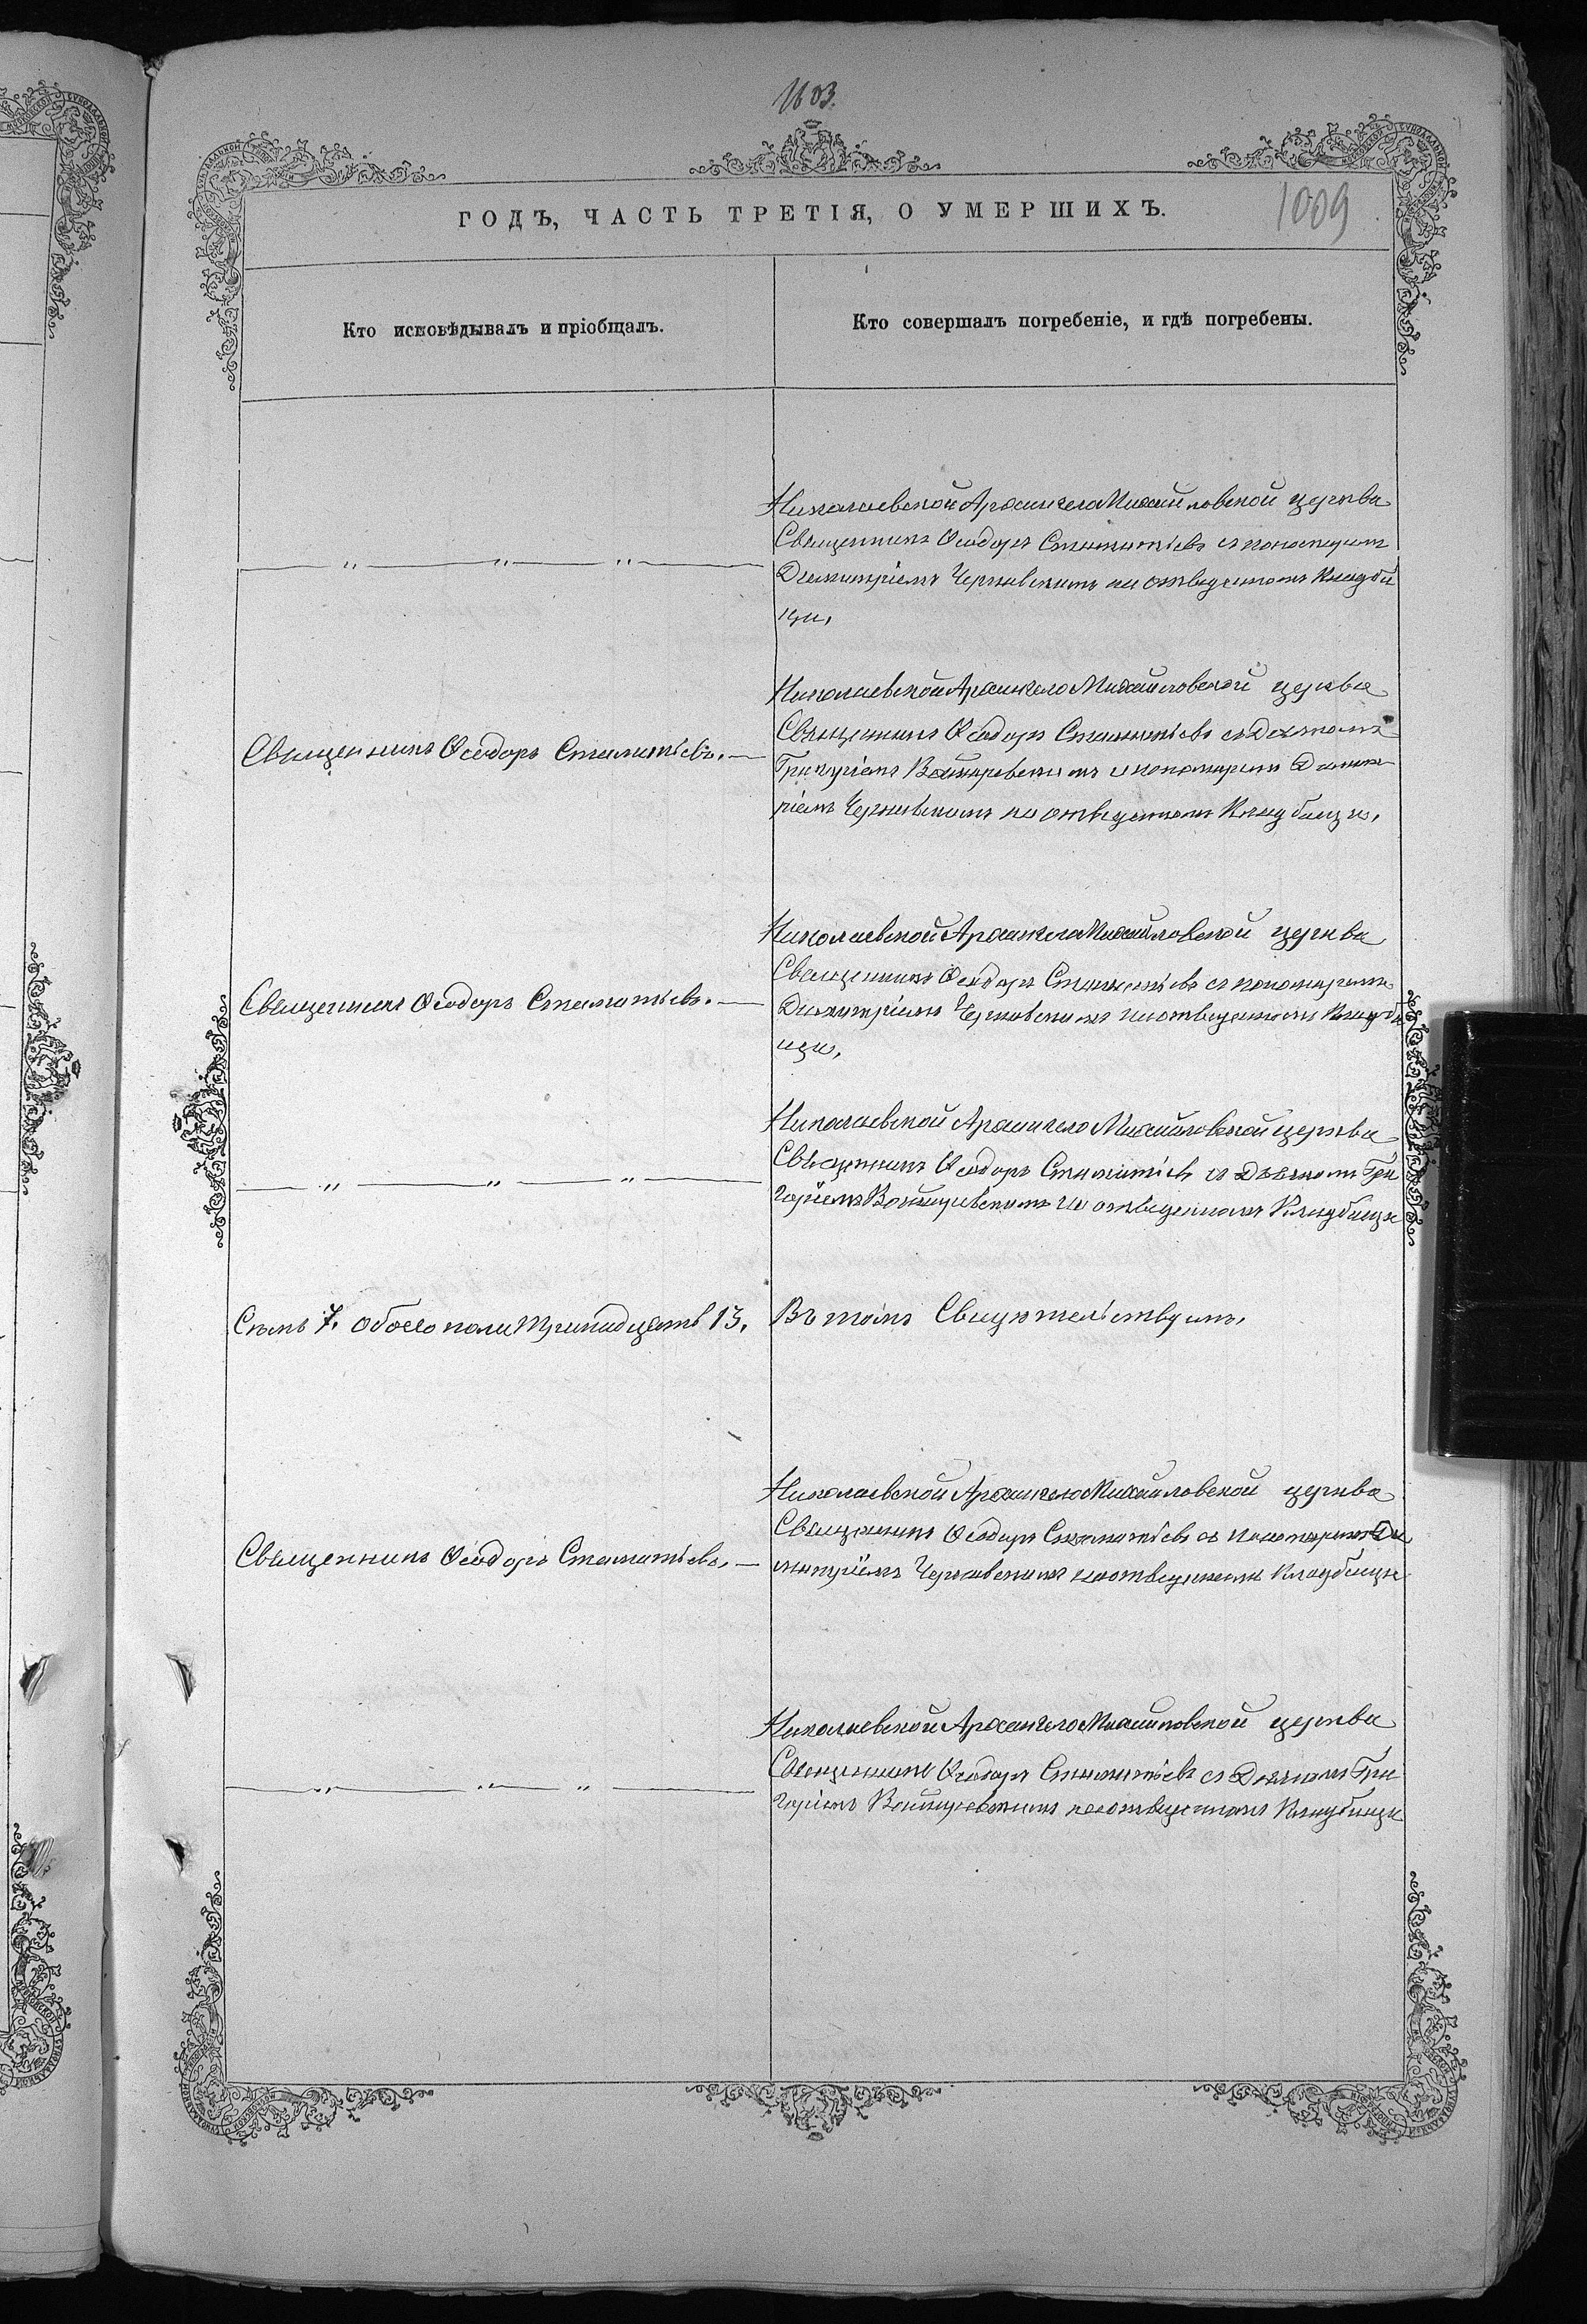 1603.
1009
ГОДЪ, ЧАСТЬ ТРЕТІЯ, О УМЕРШИХЪ.
Кто исповѣдывалъ и пріобщалъ.
Кто совершалъ погребеніе, и гдѣ погребены.
Николаевской Архангело Михайловской церкви
Священникъ Ѳеодоръ Стаматьевъ съ пономаремъ
Димитріемъ Чернявскимъ на отведенномъ кладби
щи,
Священникъ Ѳеодоръ Стаматьевъ.
Николаевской Архангело Михайловской церкви
Священникъ Ѳеодоръ Стаматьевъ съ Дьячкомъ
Григоріемъ и пономаремъ Димит
ріемъ Чернявскимъ на отведенномъ кладбищи,
Священникъ Ѳеодоръ Стаматьевъ.
Николаевской Архангело Михайловской церкви
Священникъ Ѳеодоръ Стаматьевъ съ пономаремъ
Димитріемъ Чернявскимъ на отведенномъ кладби
щи,
Николаевской Архангело Михайловской церкви
Священникъ Ѳеодоръ Стаматьевъ съ Дьячкомъ Гри
горіемъ на отведенномъ кладбищи
Семь 7. обоего пола тринадцать 13.
Въ томъ Свидѣтельствуемъ,
Священникъ Ѳеодоръ Стаматьевъ,
Николаевской Архангело Михайловской церкви
Священникъ Ѳеодоръ Стаматьевъ съ пономаремъ Ди
митріемъ Чернявскимъ на отведенномъ кладбищи
Николаевской Архангело Михайловской церкви
Священникъ Ѳеодоръ Стаматьевъ съ Дьячкомъ Гри
горіемъ на отведенномъ кладбищи